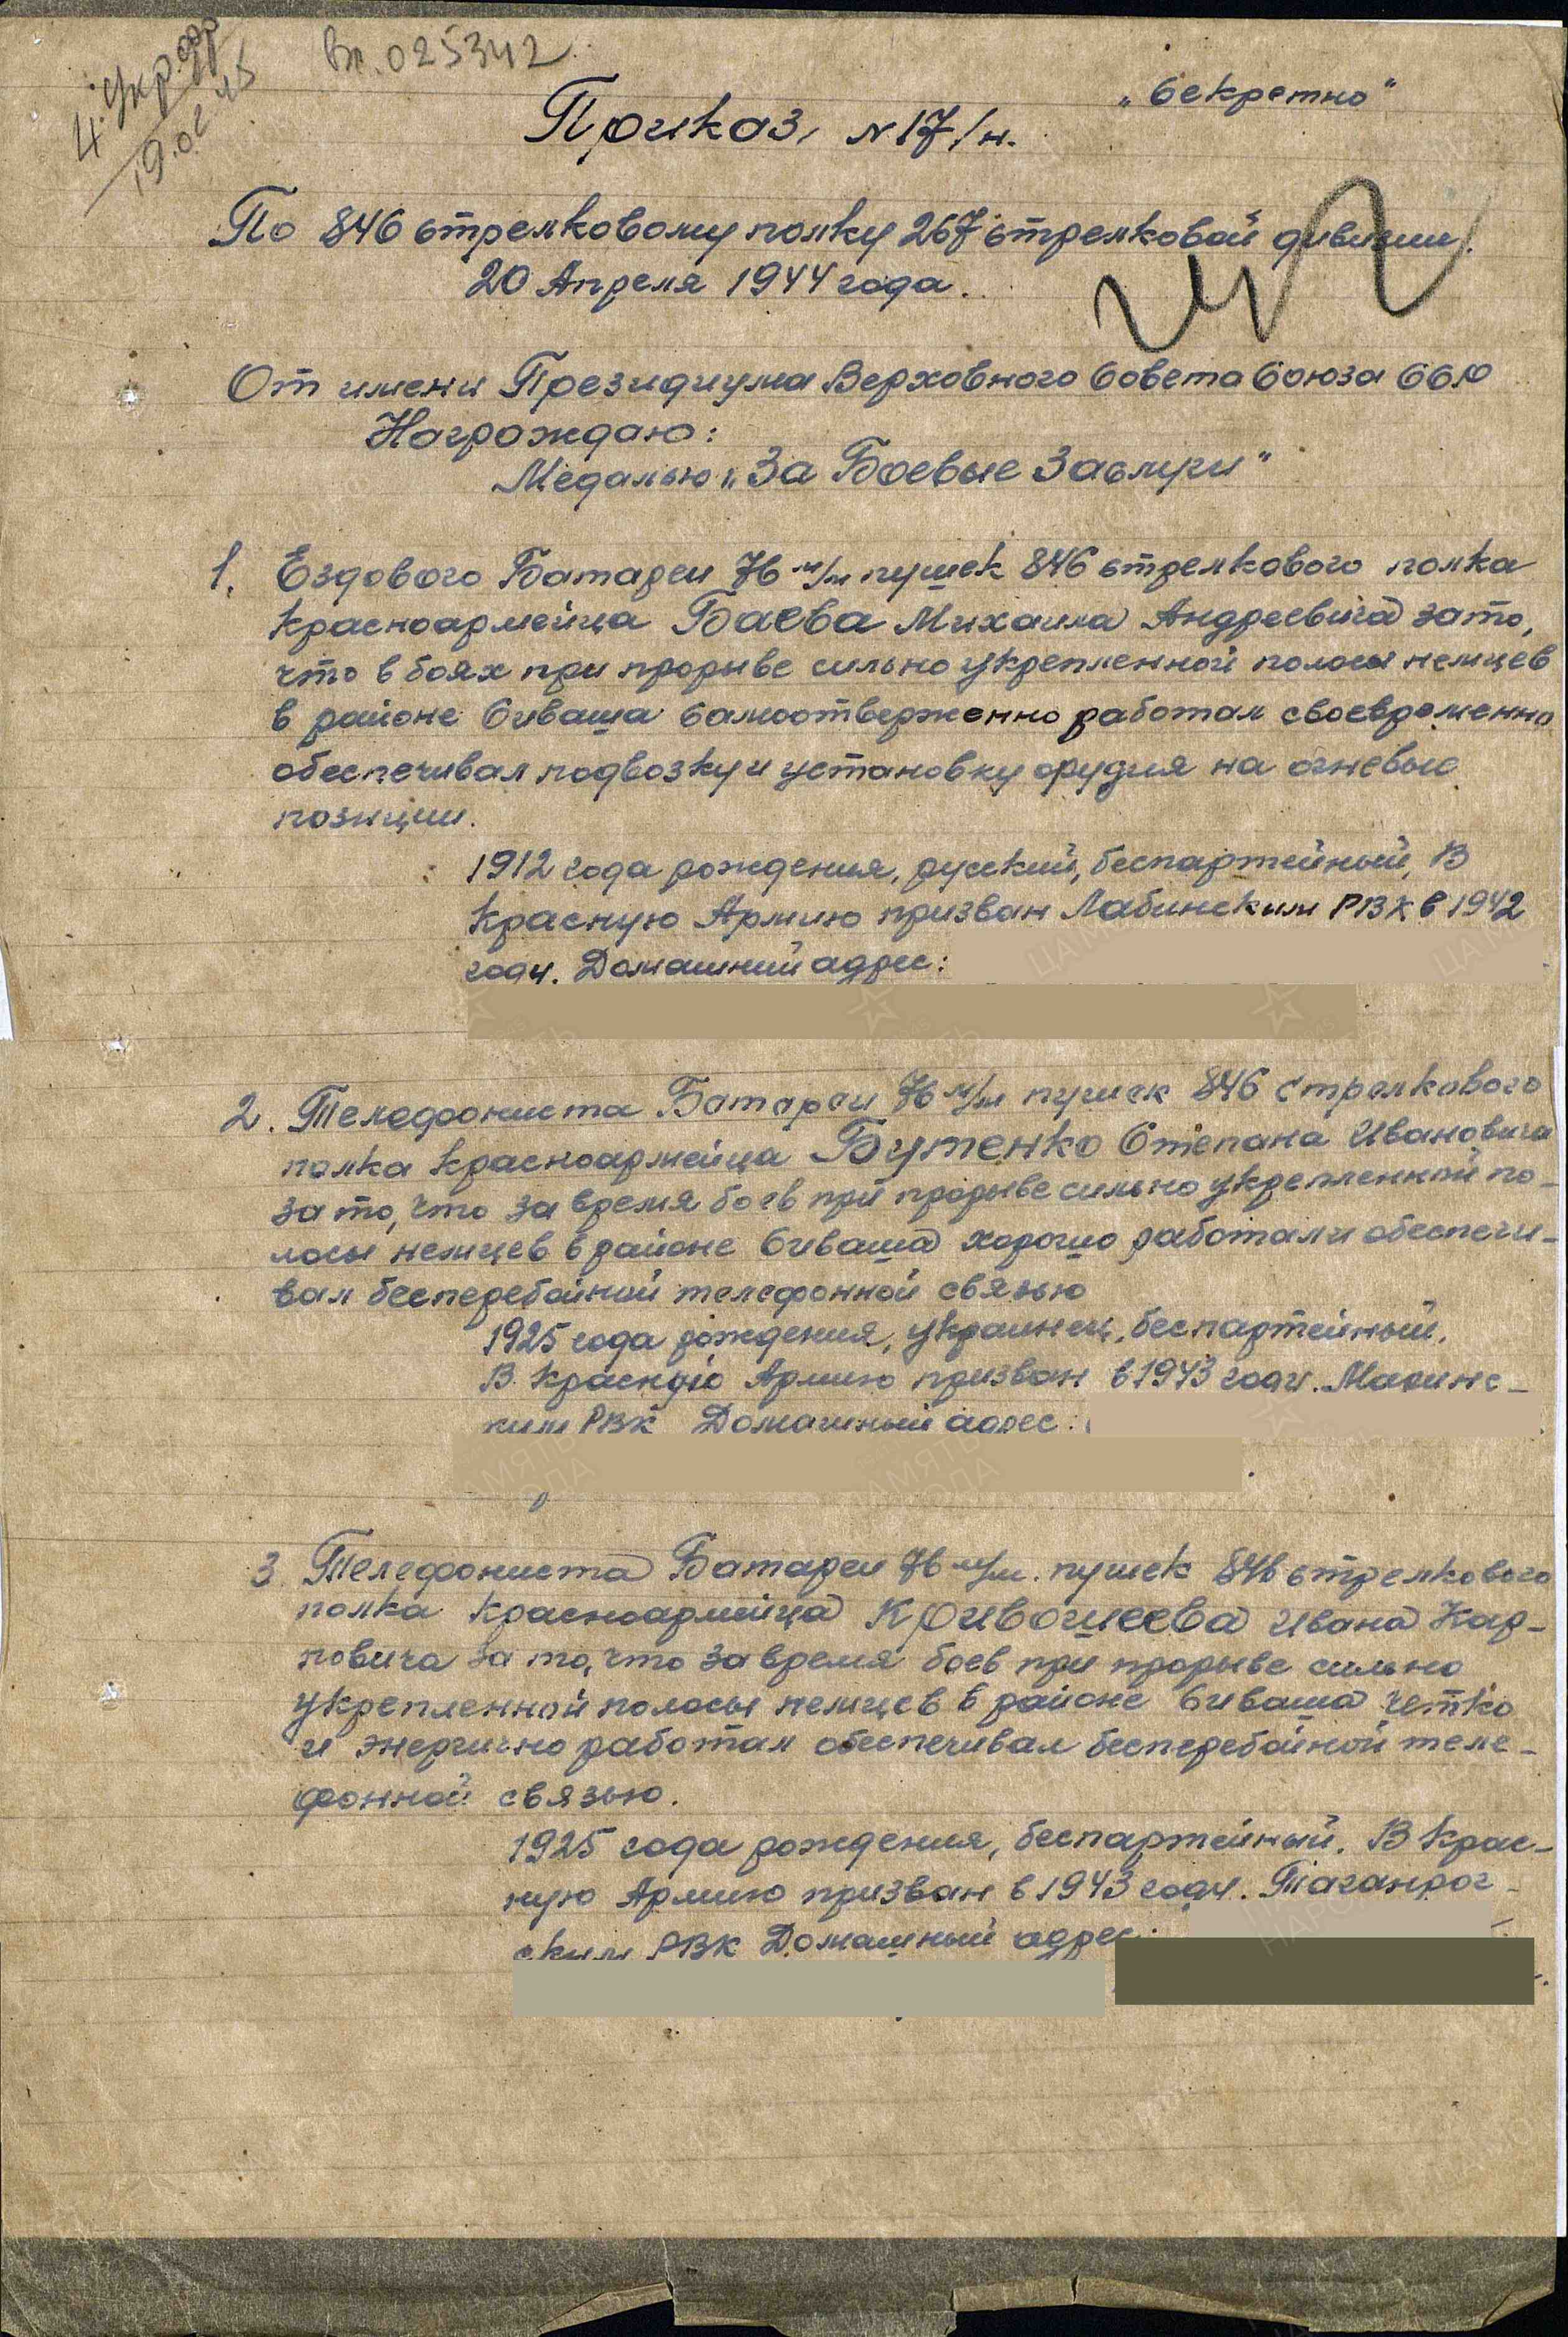 4 Укр. фр
19.02.45
Вх. 025342
„Секретно"
Приказ, № 17/н.
По 846 стрелковому полку 267 стрелковой дивизии.
20 Апреля 1944 года.
От имени Президиума Верховного Совета Союза ССР
Награждаю:
Медалью „За Боевые Заслуги"
1. Ездового Батареи 76 м/м пушек 846 стрелкового полка
красноармейца Баева Михаила Андреевича за то,
что в боях при прорыве сильно укрепленной полосы немцев
в районе Сиваша самоотверженно работал своевременно
обеспечивал подвозку и установку орудия на огневые
позиции.
1912 года рождения, русский, беспартейный, В
Красную Армию призван Лабинским РВК в 1942
году. Домашний адрес:
2. Телефониста Батареи 76 м/м пушек 846 Стрелкового
полка красноармейца Бутенко Степана Ивановича
за то, что за время боев при прорыве сильно укрепленной по-
лосы немцев в районе Сиваша хорошо работал и обеспечи-
вал бесперебойной телефонной связью
1925 года рождения, украинец, беспартейный.
В Красную Армию призван в 1943 году. Маринс-
ким РВК Домашный адрес:
3. Телефониста Батареи 76 м/м. пушек 846 стрелкового
полка красноармейца Кривошеева Ивана Кар-
повича за то, что за время боев при прорыве сильно
укрепленной полосы немцев в районе Сиваша четко
и энергично работал обеспечивал бесперебойной теле-
фонной связью.
1925 года рождения, беспартейный. В Крас-
ную Армию призван в 1943 году. Таганрог-
ским РВК Домашный адрес: